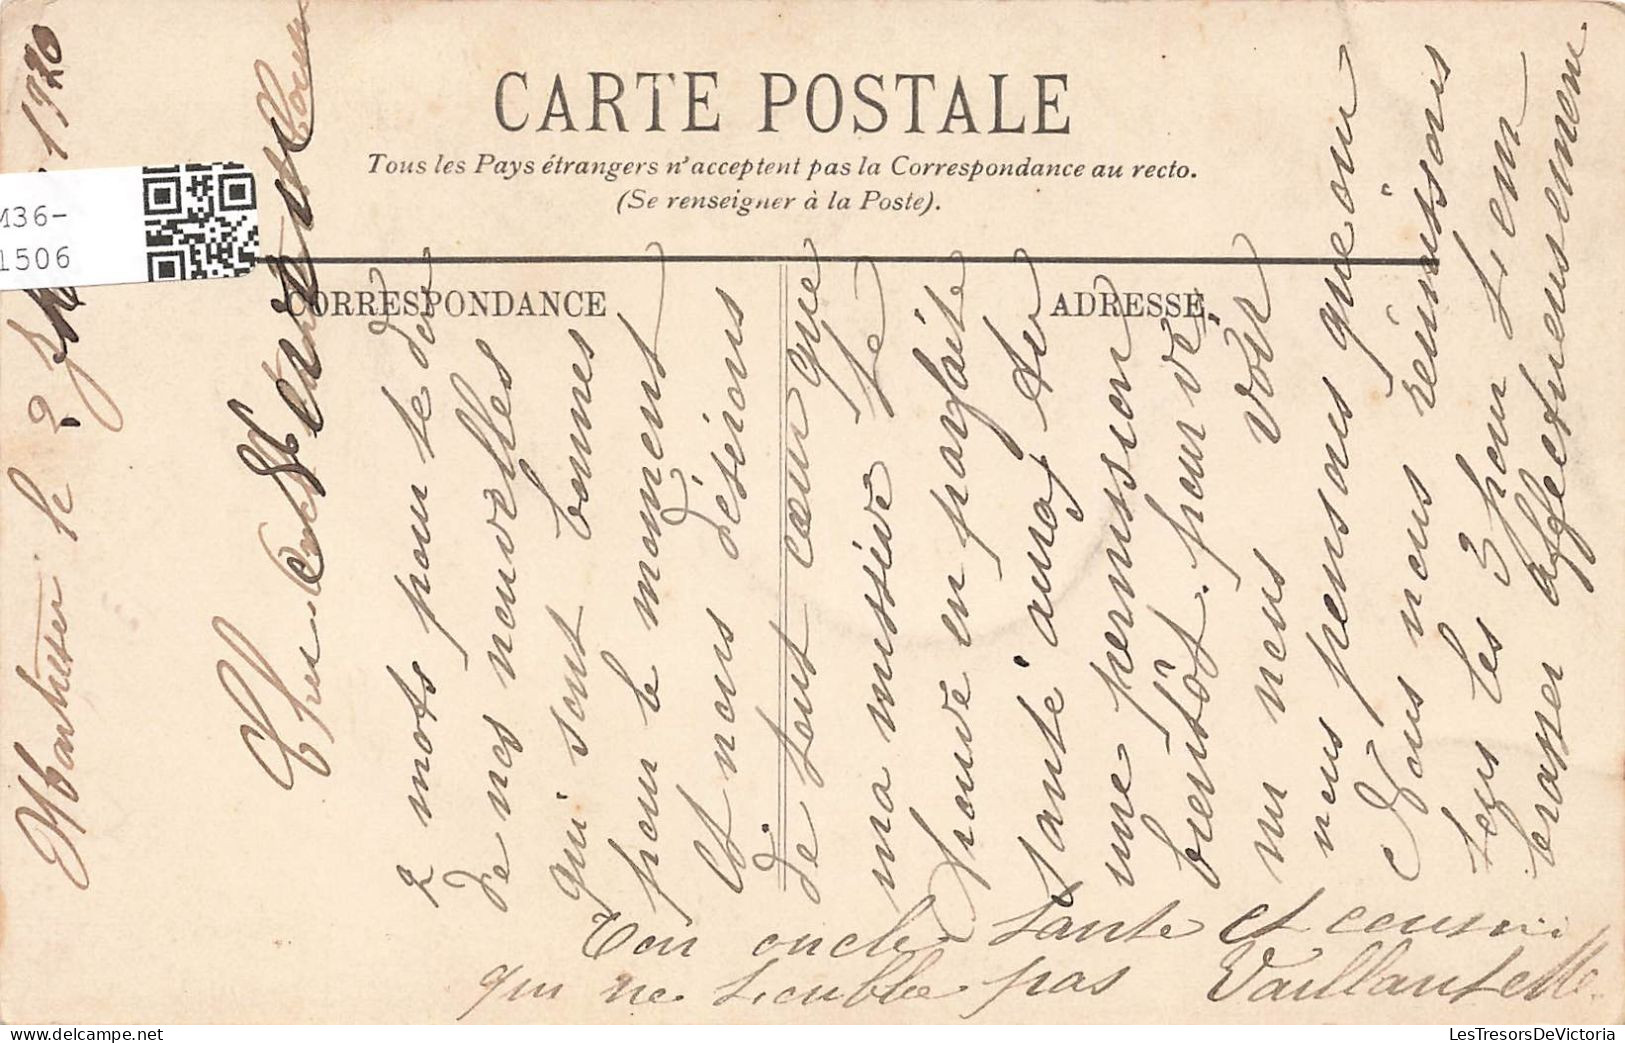 CARTE POSTALE
Tous les Pays étrangers n'acceptent pas la Correspondance au recto.
(Se renseigner à la Poste).
CORRESPONDANCE
ADRESSE
M36-
1506
le 2 1920
Cher
2 mots pour te dire
de nos nouvelles
qui sont bonnes
pour le moment
et nous désirons
de tout cœur que
ma missive te
trouve en parfaite
santé auras tu
une permission
bientôt pour ve
nir nous voir
nous pensons que oui
Nous nous réunissons
tous les 3 pour t'em
brasser affectueusement
Ton oncle tante et cousin
qui ne t'oublie pas Vaillant
LesTresorsDeVictoria